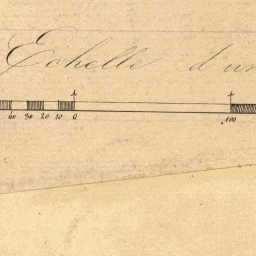 Echelle d'un
60 30 20 10 0 100